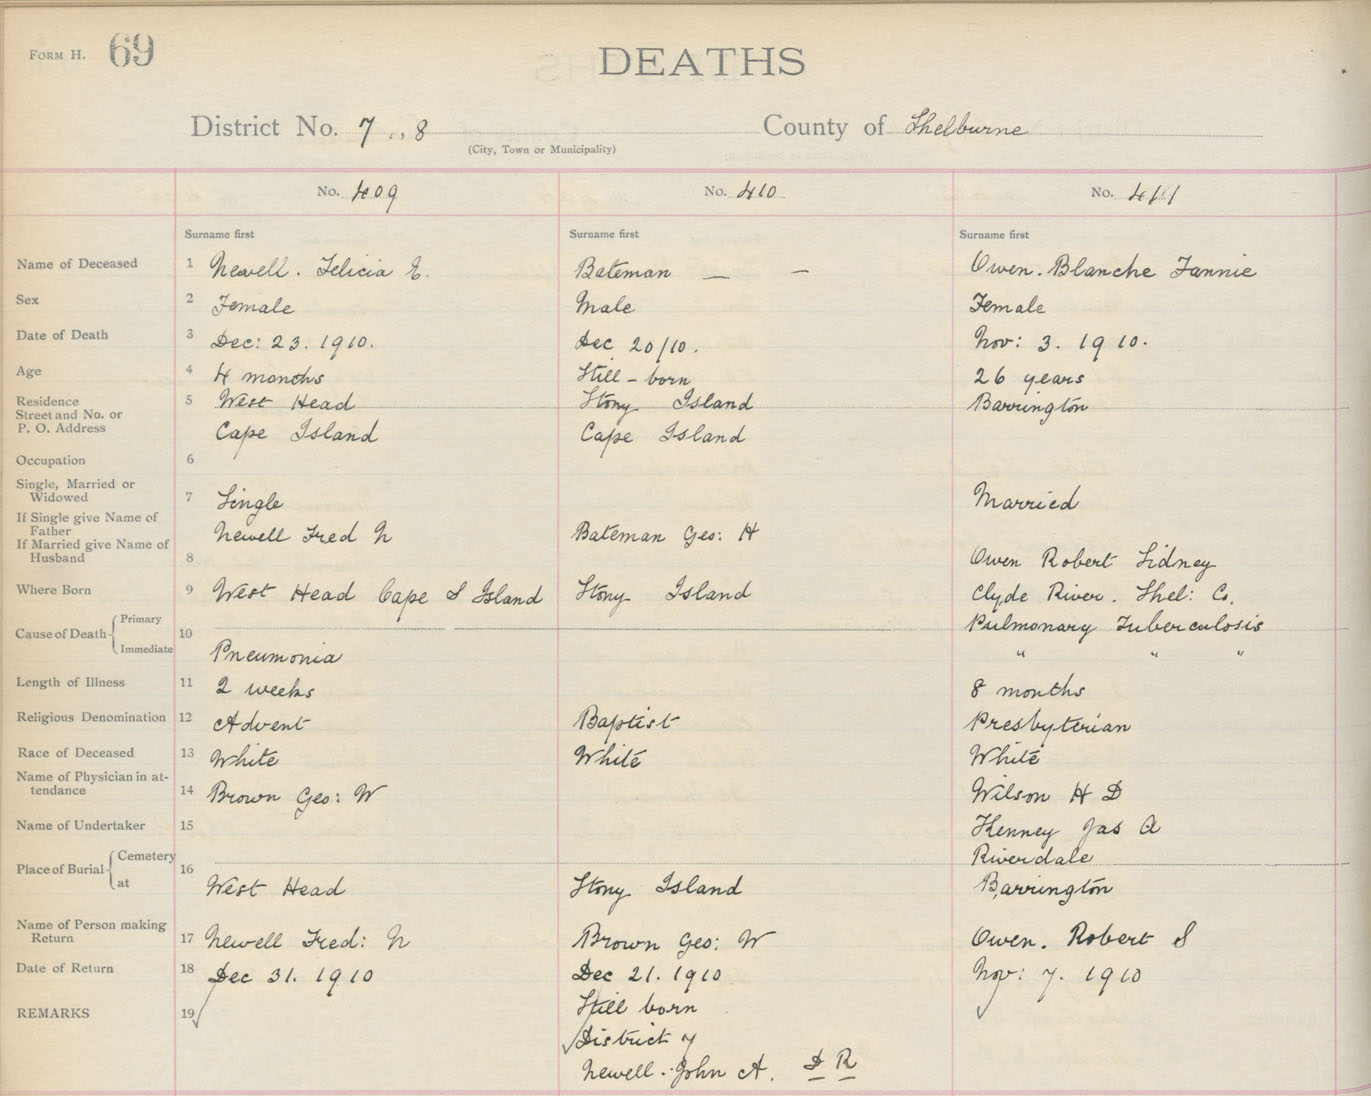 FORM H. 69
DEATHS
District No. 7 „ 8 County of Shelburne
(City, Town or Municipality)
No. 409 No. 410 No. 411
Surname first Surname first Surname first
Name of Deceased 1 Newell. Felicia E. Bateman — — Owen. Blanche Fannie
Sex 2 Female Male Female
Date of Death 3 Dec: 23. 1910. Dec 20/10. Nov: 3. 1910.
Age 4 4 months Still - born 26 years
Residence 5 West Head Stony Island Barrington
Street and No. or
P. O. Address Cape Island Cape Island
Occupation 6
Single, Married or
Widowed 7 Single Married
If Single give Name of
Father Newell Fred N Bateman Geo: H
If Married give Name of
Husband 8 Owen Robert Sidney
Where Born 9 West Head Cape S Island Stony Island Clyde River. Shel: Co.
Cause of Death { Primary 10 Pulmonary Tuberculosis
Immediate Pneumonia " " "
Length of Illness 11 2 weeks 8 months
Religious Denomination 12 Advent Baptist Presbyterian
Race of Deceased 13 White White White
Name of Physician in at-
tendance 14 Brown Geo: W Wilson H D
Name of Undertaker 15 Kenney Jas A
Place of Burial { Cemetery 16 Riverdale
at West Head Stony Island Barrington
Name of Person making
Return 17 Newell Fred: N Brown Geo: W Owen. Robert S
Date of Return 18 Dec 31. 1910 Dec 21. 1910 Nov: 7. 1910
REMARKS 19 Still born
District 7
Newell. John A. D R